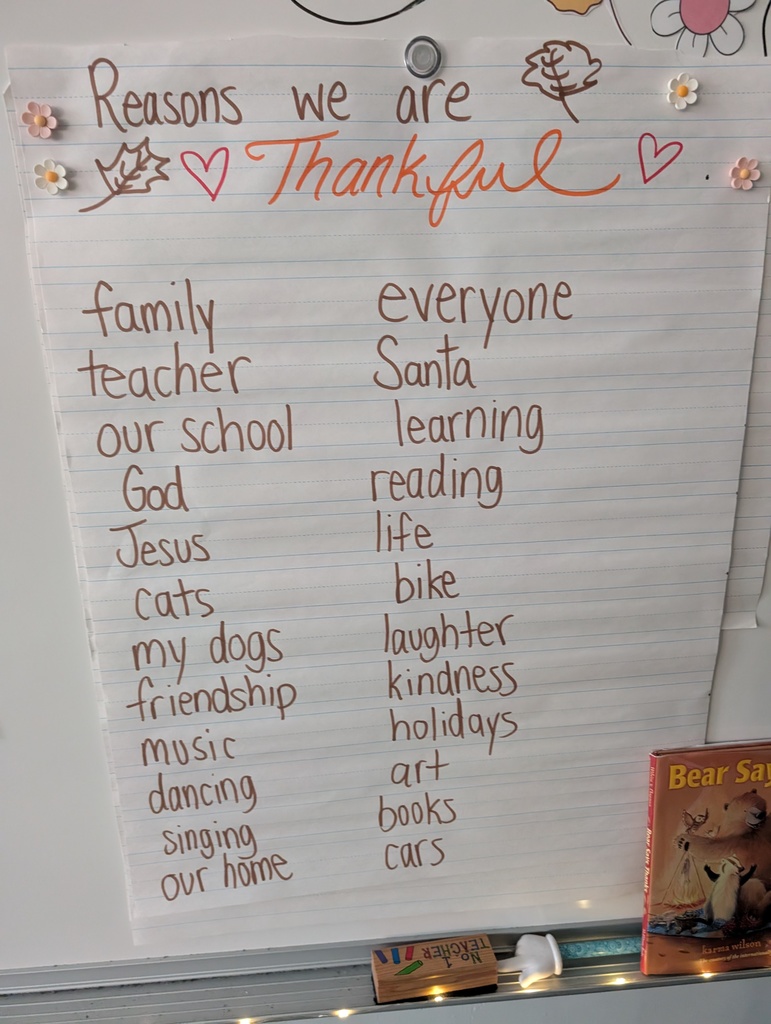 Reasons we are
Thankful
family
teacher
our school
God
Jesus
cats
my dogs
friendship
music
dancing
singing
our home
everyone
Santa
learning
reading
life
bike
laughter
kindness
holidays
art
books
cars
Bear Say
karma wilson
Bear Says Thanks
No 1
TEACHER